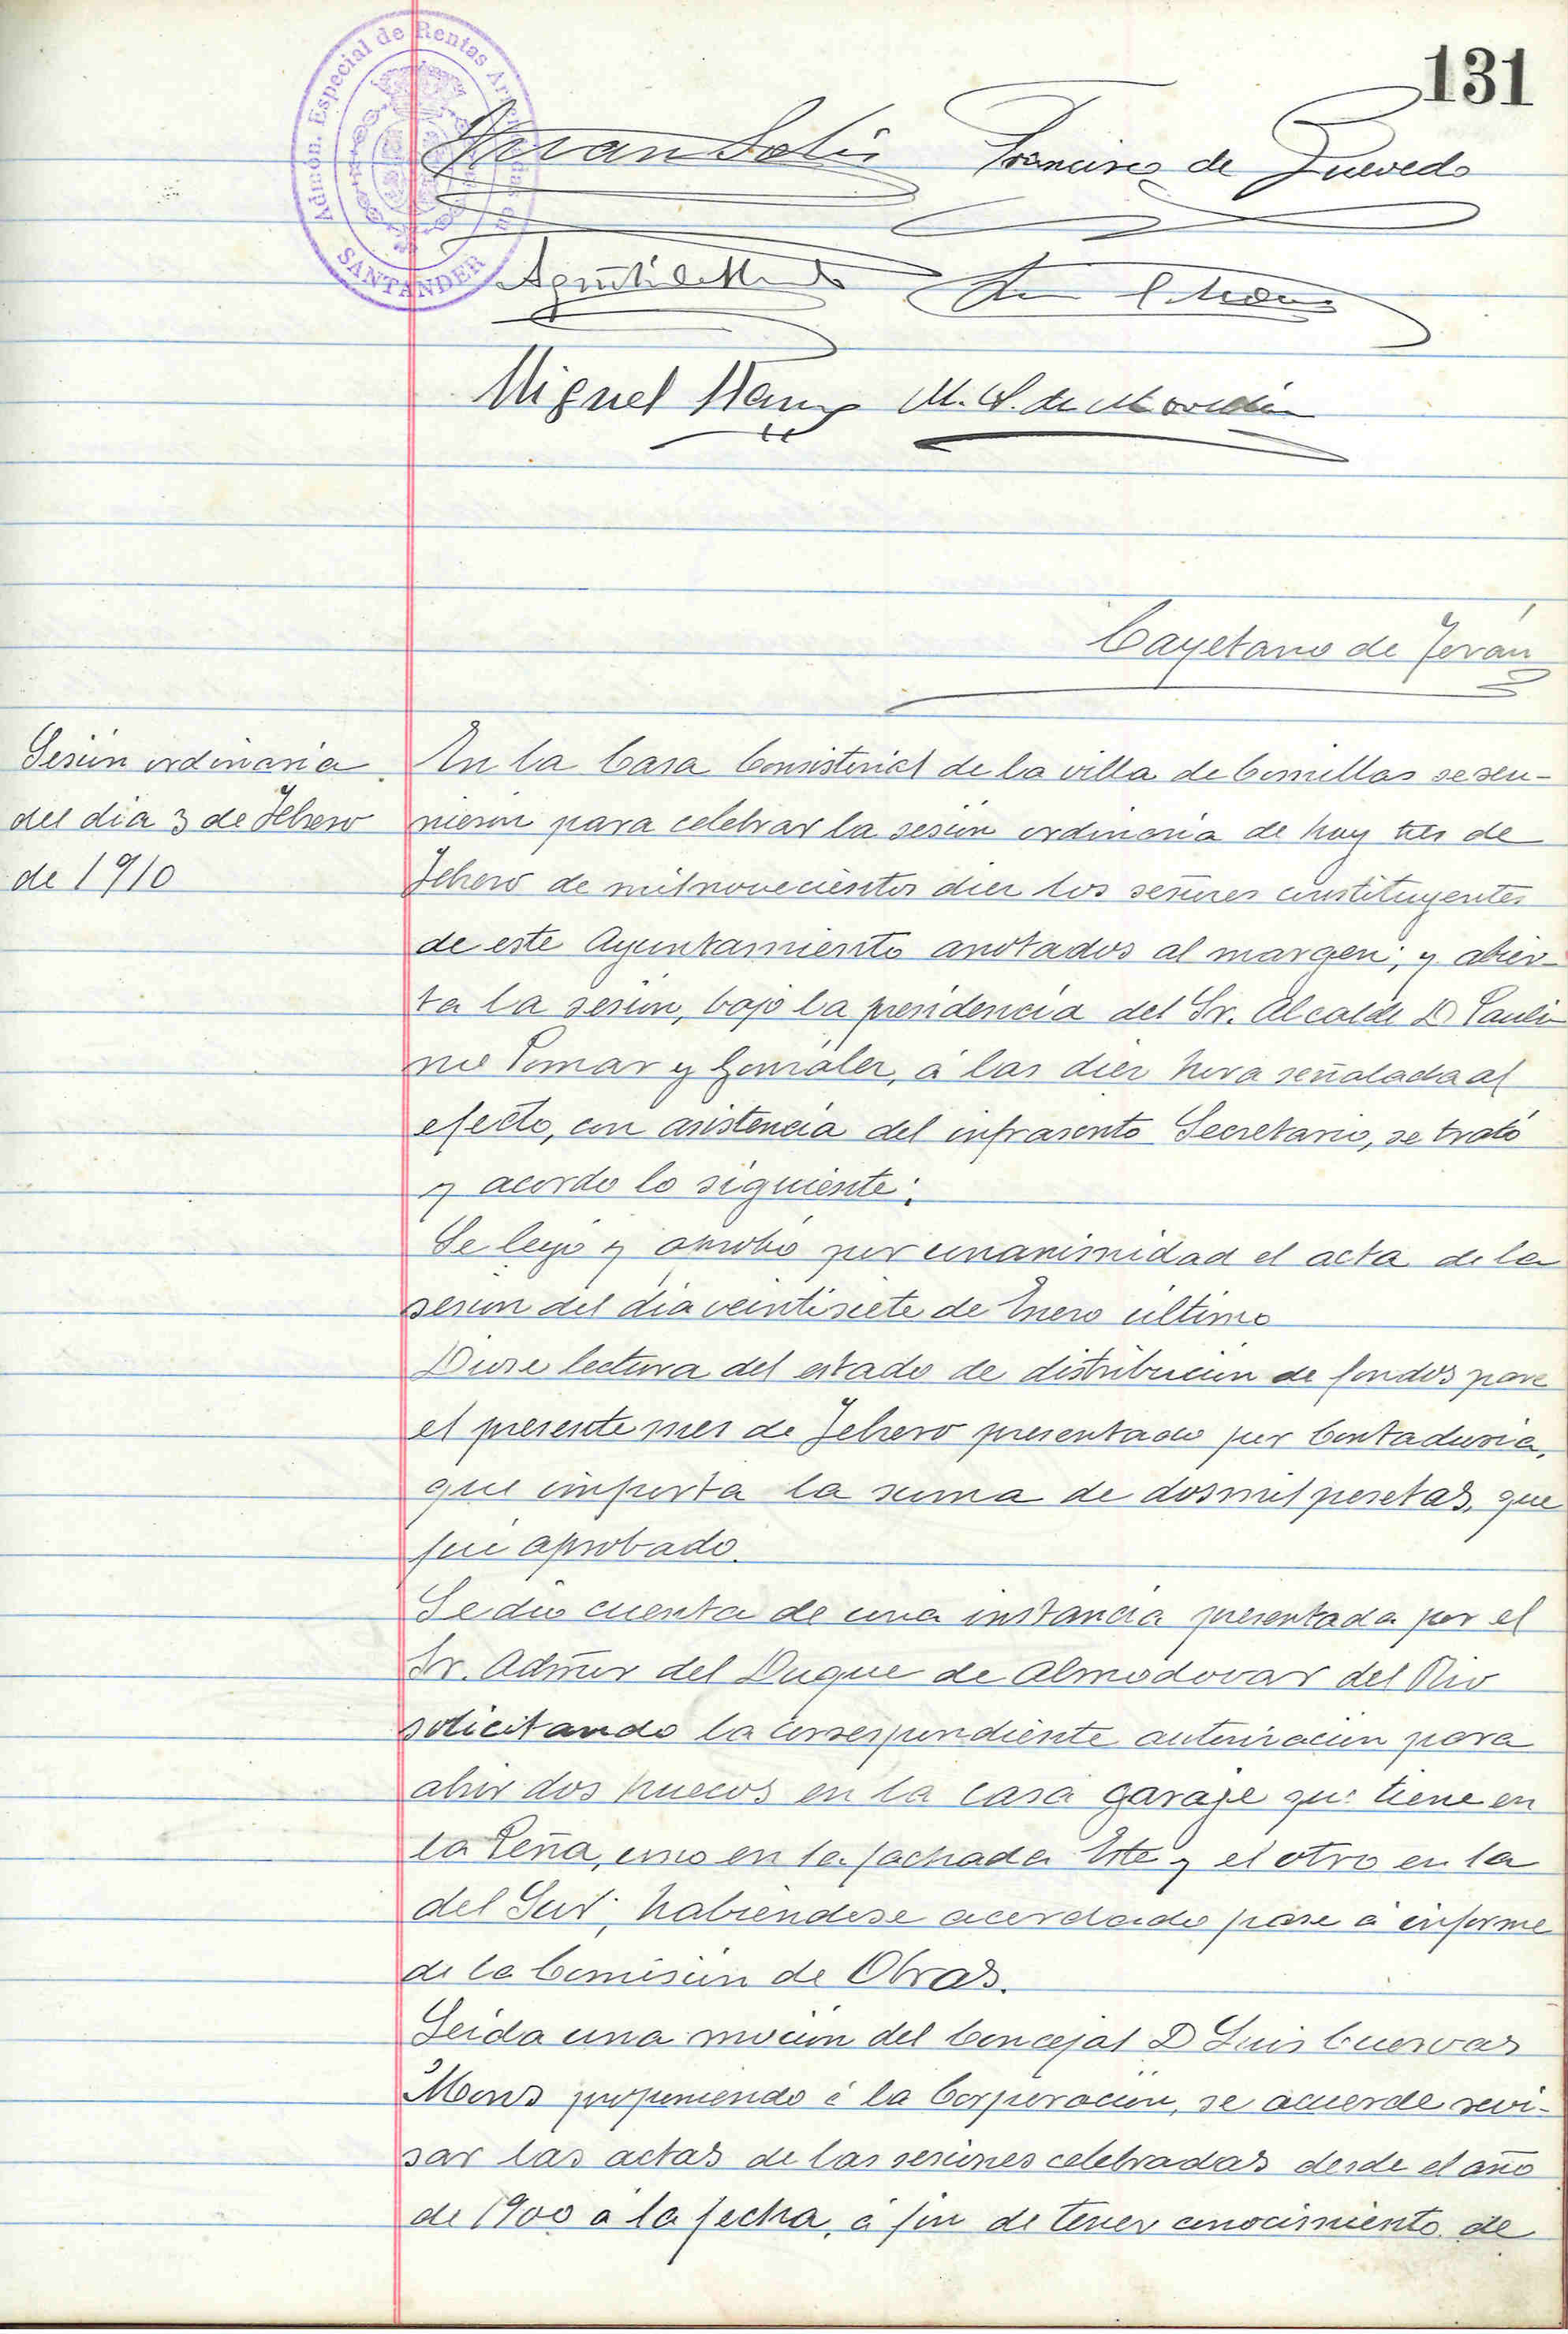 131
Admón. Especial de Rentas
SANTANDER
Juan Solís Francisco de Quevedo
Miguel M. de
Cayetano de Terán
Sesión ordinaria
del dia 3 de Febrero
de 1910
En la Casa Consistorial de la villa de Comillas se reu-
nieron para celebrar la sesión ordinaria de hoy tres de
Febrero de mil novecientos diez los señores constituyentes
de este Ayuntamiento anotados al margen; y abier-
ta la sesión, bajo la presidencia del Sr. Alcalde D Pauli-
no Pomar y González, á las diez hora señalada al
efecto, con asistencia del infrascrito Secretario, se trató
y acordo lo siguiente:
Se leyó y aprobó por unanimidad el acta de la
sesion del dia veintisiete de Enero último
Diose lectura del estado de distribución de fondos para
el presente mes de Febrero presentado por Contaduria,
que importa la suma de dos mil pesetas, que
fué aprobado.
Se dio cuenta de una instancia presentada por el
Sr. Admor del Duque de Almodovar del Rio
solicitando la correspondiente autorizacion para
abrir dos huecos en la casa garaje que tiene en
la Peña, uno en la fachada Este y el otro en la
del Sur; habiendose acordado pase á informe
de la Comisión de Obras.
Leida una moción del Concejal D Luis Cuervas
Mons proponiendo á la Corporación, se acuerde revi-
sar las actas de las sesiones celebradas desde el año
de 1900 a la fecha, á fin de tener conocimiento de